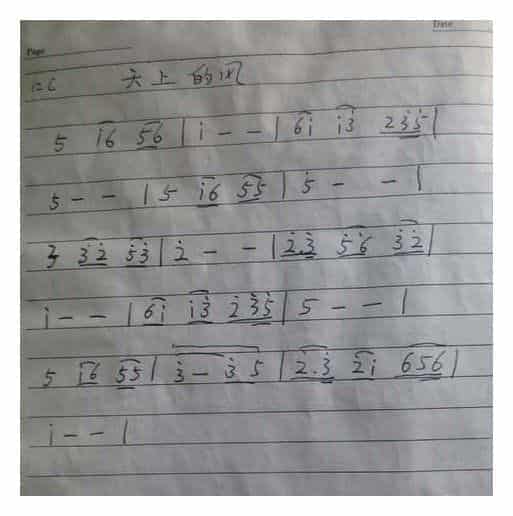 Date
Page
1=C 天上的风
5 i6 56 | i - - | 6i i3̇ 2̇3̇5̇ |
5 - - | 5 i6 55 | 5̇ - - |
3̇ 3̇2̇ 5̇3̇ | 2̇ - - | 2̇.3̇ 5̇6̇ 3̇2̇ |
i - - | 6i i3̇ 2̇3̇5̇ | 5 - - |
5 i6 55 | 3̇ - 3̇ 5 | 2̇.3̇ 2̇i 656 |
i - - |